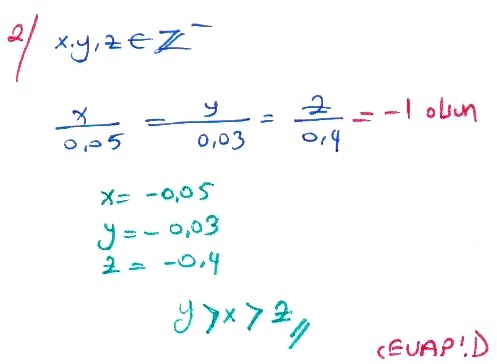 2/ x,y,z ∈ Z⁻
x/0,05 = y/0,03 = z/0,4 = -1 olsun
x = -0,05
y = -0,03
z = -0,4
y > x > z //
CEVAP: D